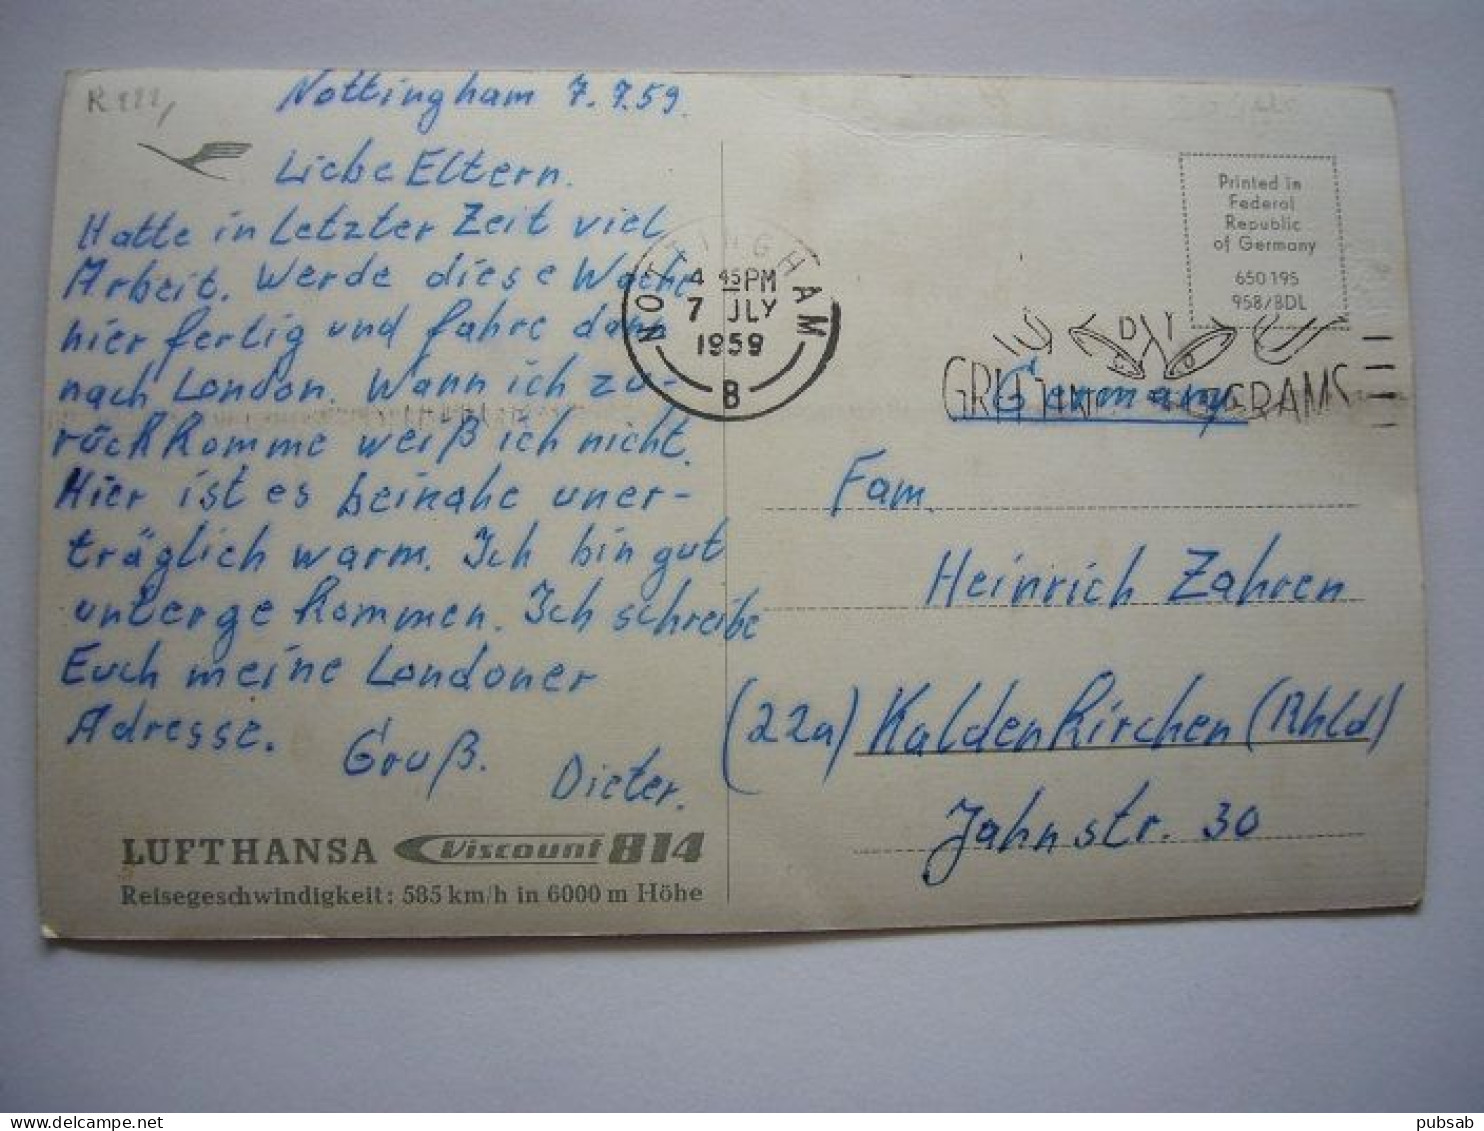 Nottingham 7.7.59.
Liebe Eltern.
Hatte in letzter Zeit viel
Arbeit. Werde diese Woche
hier fertig und fahre dann
nach London. Wann ich zu-
rückkomme weiß ich nicht.
Hier ist es beinahe uner-
träglich warm. Ich bin gut
untergekommen. Ich schreibe
Euch meine Londoner
Adresse.
Gruß.
Dieter.
LUFTHANSA Viscount 814
Reisegeschwindigkeit: 585 km/h in 6000 m Höhe
NOTTINGHAM
4 45 PM
7 JLY
1959
B
Printed in
Federal
Republic
of Germany
650 195
958/BDL
Germany
Fam.
Heinrich Zahren
(22a) Kaldenkirchen (Rhld)
Jahnstr. 30
delcampe.net
pubsab